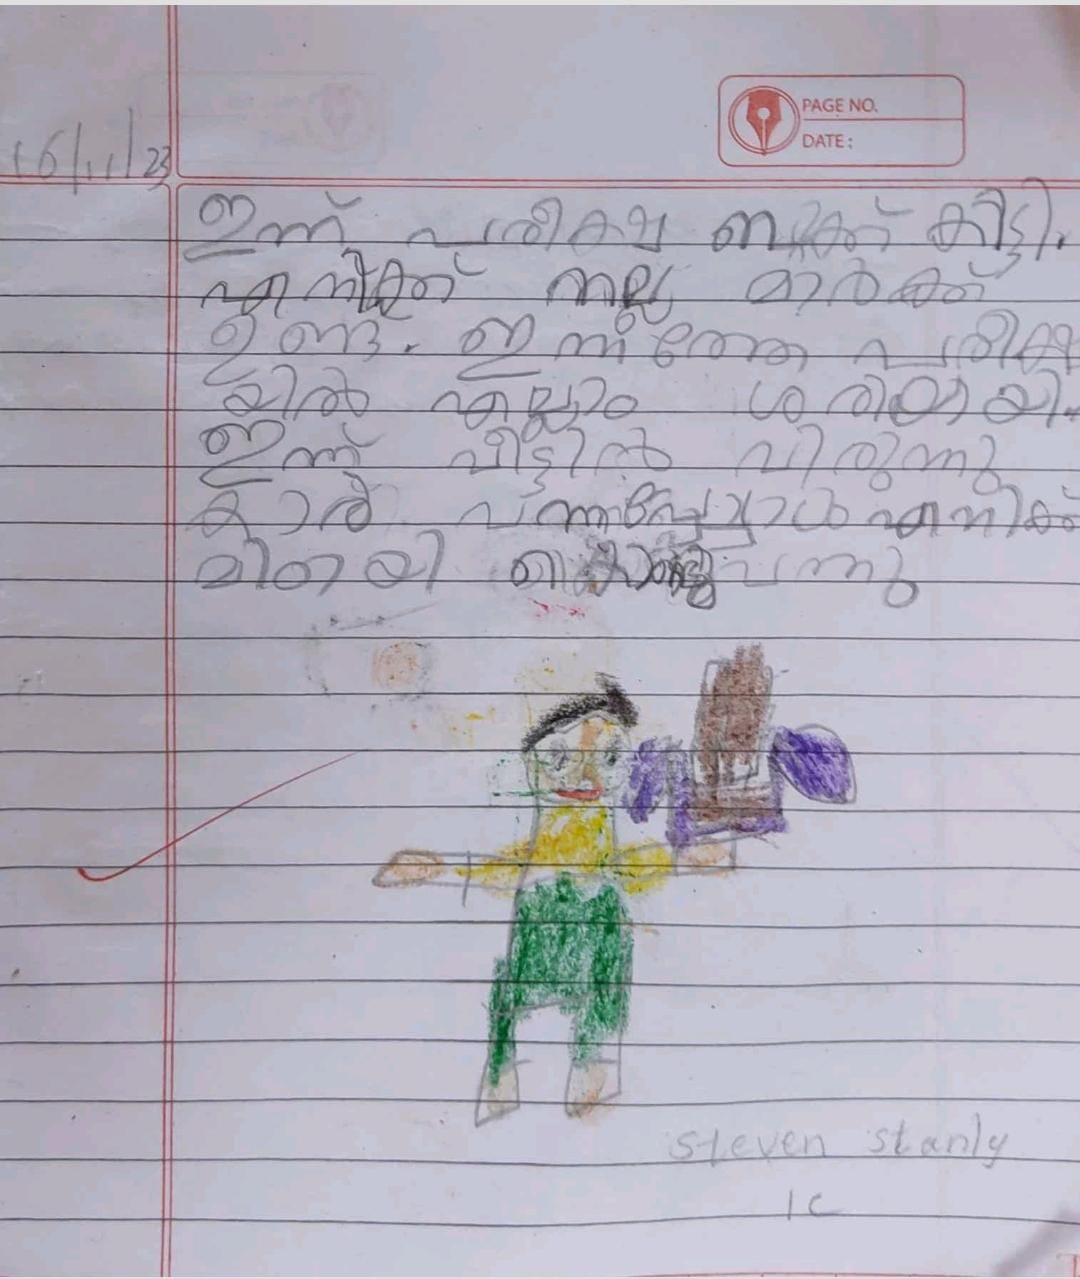 PAGE NO.
DATE:
16/11/23
ഇന്ന് പരീകഷ ബുക്ക് കിട്ടി.
എനിക്ക് നല്ല മാർക്ക്
ഉണ്ട്. ഇന്നത്തേ പരീക്ഷ
യിൽ എല്ലാം ശരിയായി.
ഇന്ന് വീട്ടിൽ വിരുന്നു
കാർ വന്നപ്പോൾ എനിക്ക്
മിഠായി കൊണ്ടുവന്നു
steven stanly
1c